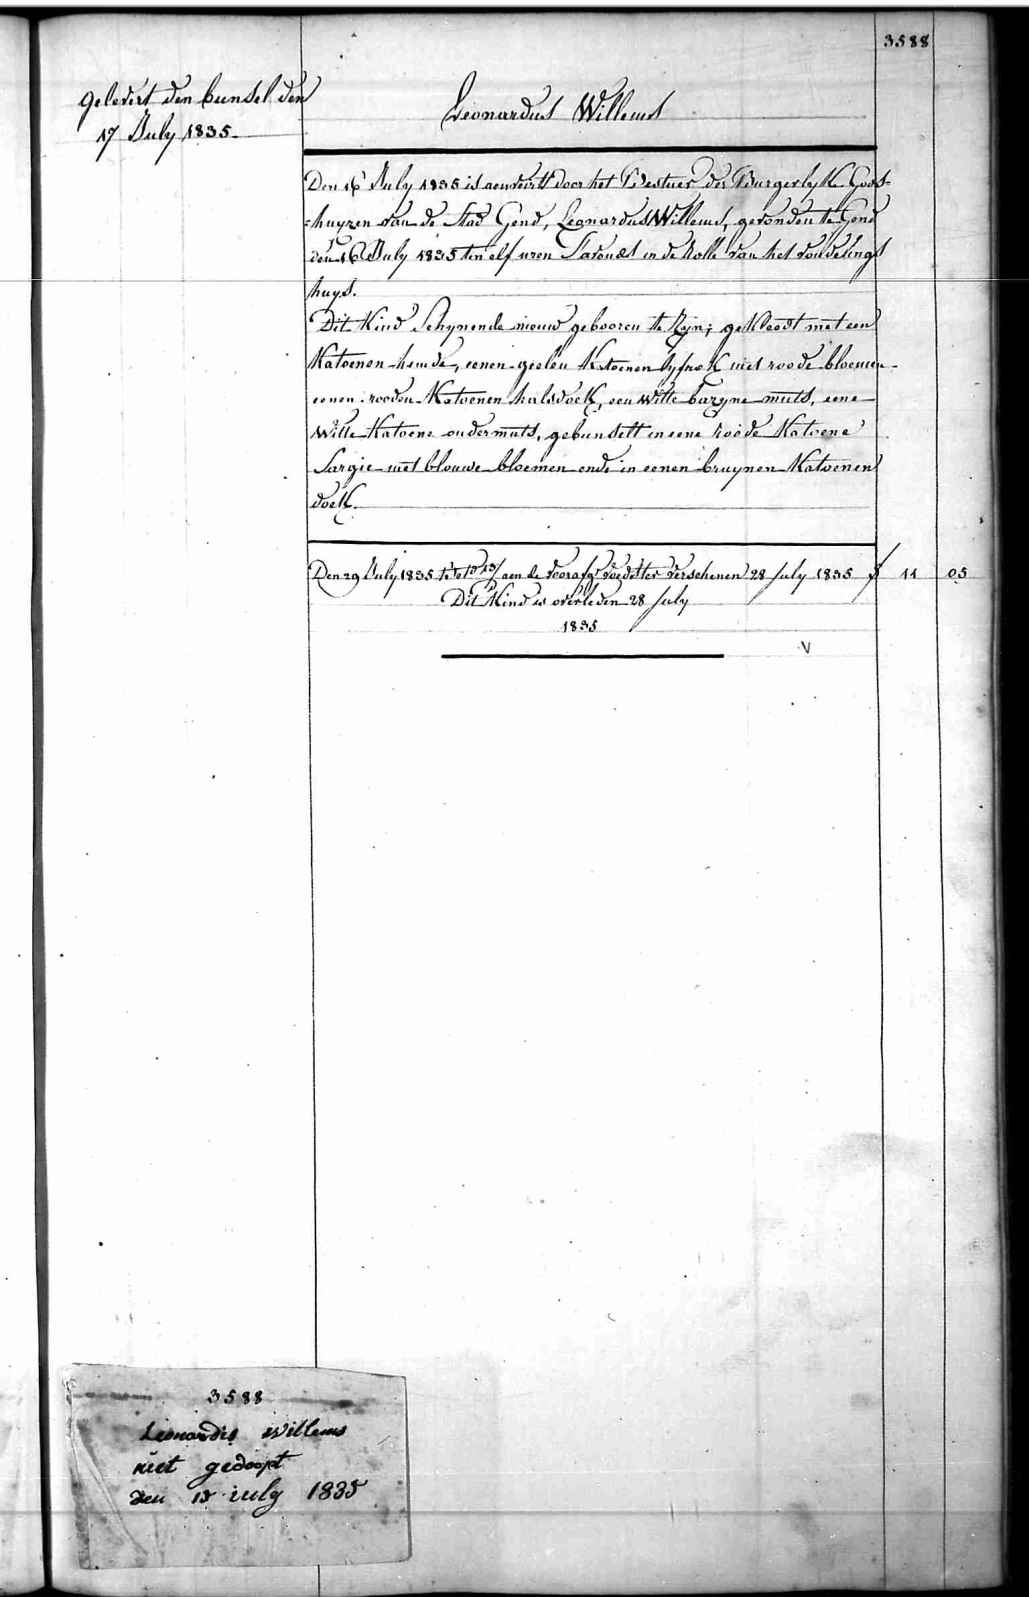 3588
gelevert den bunsel den
17 July 1835
Leonardus Willems
Den 16 July 1835 is aenveirt door het Bestuer der Burgerlyke Gods-
=huyzen van de Stad Gend, Leonardus Willems, gevonden te Gend
den 16 July 1835 ten elf uren s'avonds in de Rolle van het vondelings
huys.
Dit Kind Schynende nieuw gebooren te Zyn; gekleedt met een
Katoenen hemde, eenen geelen Katoenen lyfrok met roode bloemen
eenen rooden Katoenen halsdoek, een witte bazyne muts, eene
witte Katoene ondermuts, gebunselt in eene roode Katoene
Sargie met blouwe bloemen ende in eenen bruynen Katoenen
doek.
Den 29 July 1835 aen de voorafg voedster verschenen 28 July 1835 f 11 05
Dit Kind is overleden 28 July
1835
V
3588
Leonardis willems
niet gedoopt
den 15 iuly 1835